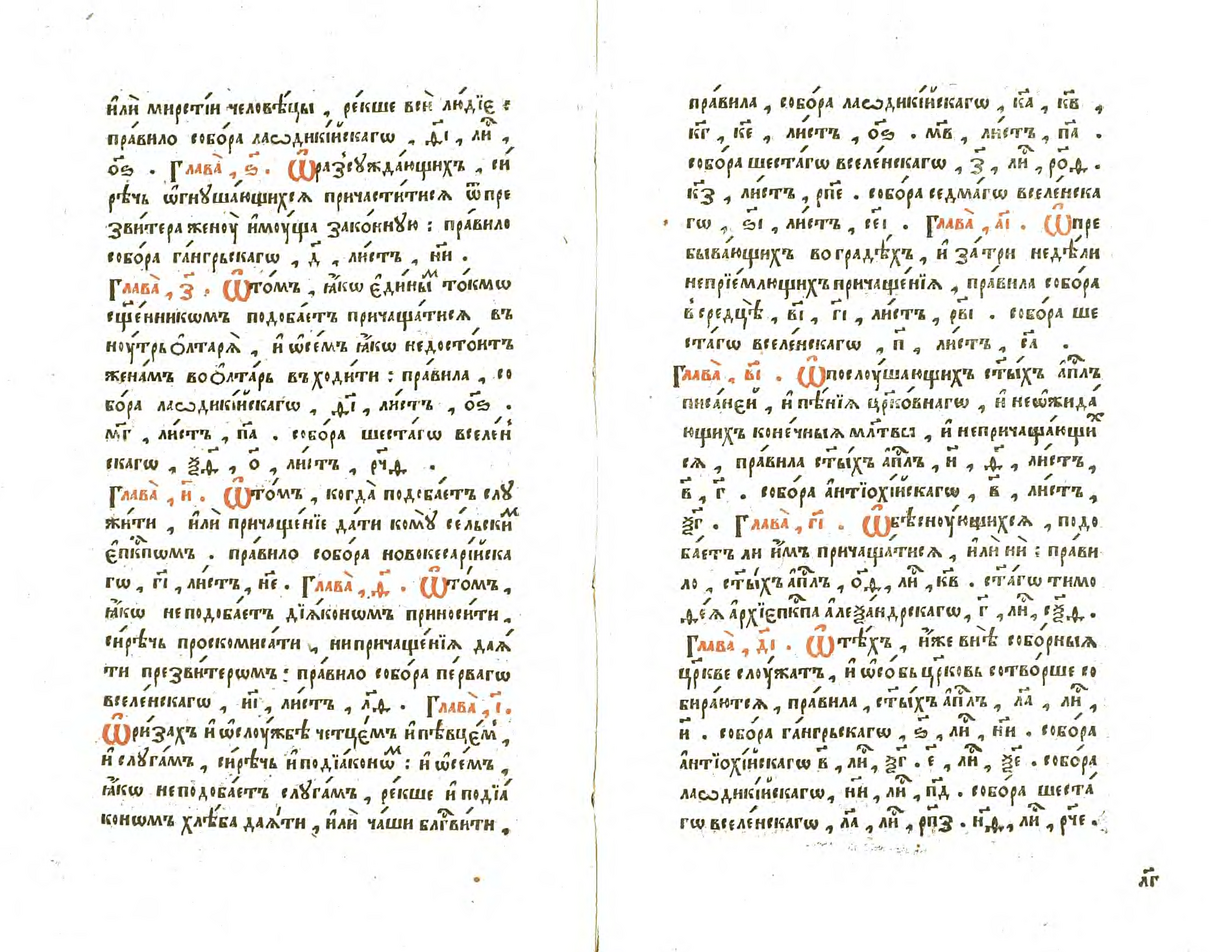 и҆лѝ мирсті́и человѣ́цы , ре́кше всѝ лю́дїе :
пра́вило собо́ра лаѡдикі́йскагѡ , д҃і , ли́ ,
о҃ѕ . Глава̀ , ѕ҃ . Ѡ҆разсужда́ющихъ , си
рѣ́чь ѡ҆гнуша́ющихсѧ причасти́тисѧ ѿпре
зви́тера женоу̀ и҆моу́ща зако́нную : пра́вило
собо́ра га́нгрьскагѡ , д҃ , ли́стъ , н҃и .
Глава̀ , з҃ . Ѡ҆то́мъ , ꙗ҆́кѡ є҆ди́ныⷨ то́кмѡ
сщ҃е́нникѡмъ подоба́етъ причаща́тисѧ въ
ноу́трь ѻ҆лтарѧ̀ , и҆ ѡ҆се́мъ ꙗ҆́кѡ недосто́итъ
жена́мъ во ѻ҆лта́рь входи́ти : пра́вила , со
бо́ра лаѡдикі́йскагѡ , д҃і , ли́стъ , о҃ѕ .
м҃г , ли́стъ , п҃а . собо́ра шеста́гѡ вселе́н
скагѡ , ѯ҃д , о҃ , ли́стъ , рч҃д .
Глава̀ , и҃ . Ѡ҆то́мъ , когда̀ подоба́етъ слꙋ
жи́ти , и҆лѝ причаще́нїе да́ти комꙋ̀ се́льскиⷨ
є҆пⷭ҇кпѡмъ . пра́вило собо́ра новокесарі́йска
гѡ , г҃і , ли́стъ , н҃е . Глава̀ , ѳ҃ . Ѡ҆то́мъ ,
ꙗ҆́кѡ неподоба́етъ дїѧ́конѡмъ приноси́ти ,
си́рѣчь проскомиса́ти , нипричаще́нїѧ даѧ́
ти презви́терѡмъ : пра́вило собо́ра пе́рвагѡ
вселе́нскагѡ , и҃і , ли́стъ , л҃д . Глава̀ , і҃ .
Ѡ҆ри́захъ и҆ ѡ҆слоу́жбѣ четце́мъ и҆ пѣвце́м ,
и҆ слꙋга́мъ , си́рѣчь и҆ подїа́конѡⷨ : и҆ ѡ҆се́мъ ,
ꙗ҆́кѡ неподоба́етъ слꙋга́мъ , ре́кше и҆ подїа́
конѡмъ хлѣ́ба даѧ́ти , и҆лѝ ча́ши блгⷭ҇ви́ти ,
пра́вила , собо́ра лаѡдикі́йскагѡ , к҃а , к҃в ,
к҃г , к҃е , ли́стъ , о҃ѕ . м҃в , ли́стъ , п҃а .
собо́ра шеста́гѡ вселе́нскагѡ , з҃ , ли́ , ро҃д .
к҃з , ли́стъ , рп҃е . собо́ра седма́гѡ вселе́нска
гѡ , ѕ҃і , ли́стъ , се҃і . Глава̀ , а҃і . Ѡ҆пре
быва́ющихъ воградѣ́хъ , и҆ затрѝ недѣ́ли
непрїе́млющихъ причаще́нїѧ , пра́вила собо́ра
всредцѣ́ , в҃і , г҃і , ли́стъ , рв҃і . собо́ра ше
ста́гѡ вселе́нскагѡ , п҃ , ли́стъ , с҃а .
Глава̀ , в҃і . Ѡ҆послоу́шающихъ ст҃ы́хъ а҆пⷭ҇лъ
писа́нєй , и҆ пѣ́нїѧ цр҃ко́внагѡ , и҆ неѡ҆жида́
ющихъ коне́чныѧ мл҃твы , и҆ непричаща́ющиⷯ
сѧ , пра́вила ст҃ы́хъ а҆пⷭ҇лъ , и҃ , ѳ҃ , ли́стъ ,
в҃ , г҃ . собо́ра а҆нтїохі́йскагѡ , в҃ , ли́стъ ,
ѯ҃г . Глава̀ , г҃і . Ѡ҆бѣсноу́ющихсѧ , подо
ба́етъ ли и҆̀мъ причаща́тисѧ , и҆лѝ нѝ : пра́ви
ло , ст҃ы́хъ а҆пⷭ҇лъ , о҃ѳ , ли́ , к҃в . ст҃а́гѡ тимо
ѳе́ѧ а҆рхїєпⷭ҇кпа а҆леѯа́ндрскагѡ , г҃ , ли́ , сѯ҃д .
Глава̀ , д҃і . Ѡ҆ тѣ́хъ , и҆̀же внѣ̀ собо́рныѧ
цр҃кве слоу́жатъ , и҆ ѡ҆со́бь цр҃ковь сотво́рше со
бира́ютсѧ , пра́вила , ст҃ы́хъ а҆пⷭ҇лъ , л҃а , ли́ ,
и҃ . собо́ра га́нгрьскагѡ , ѕ҃ , ли́ , н҃и . собо́ра
а҆нтїохі́йскагѡ в҃ , ли́ , ѯ҃г . е҃ , ли́ , ѯ҃е . собо́ра
лаѡдикі́йскагѡ , н҃и , ли́ , п҃д . собо́ра шеста́
гѡ вселе́нскагѡ , л҃а , ли́ , рп҃з . н҃ѳ , ли́ , рч҃е .
л҃г